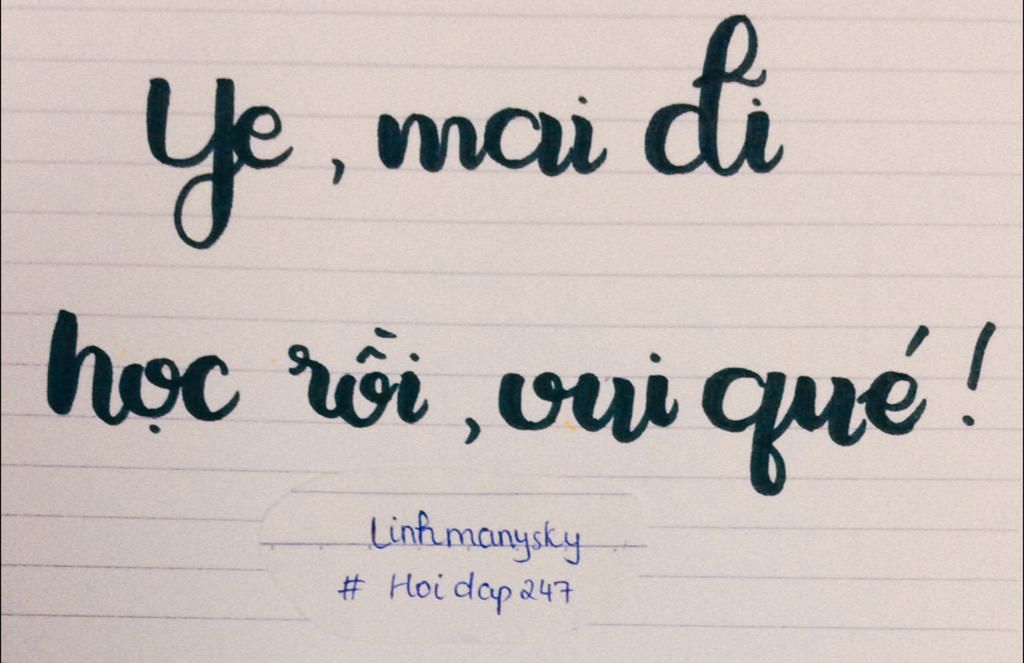 Ye, mai đi
học rồi, vui qué!
Linhmanysky
# Hoidap247